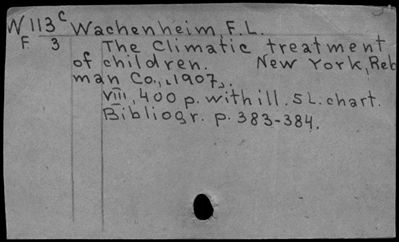 W 113 c Wachenheim, F. L.
F 3 The Climatic treatment
of children. New York, Reb
man Co., 1907.
VIII, 400 p. with ill. 5 L. chart.
Bibliogr. p. 383-384.